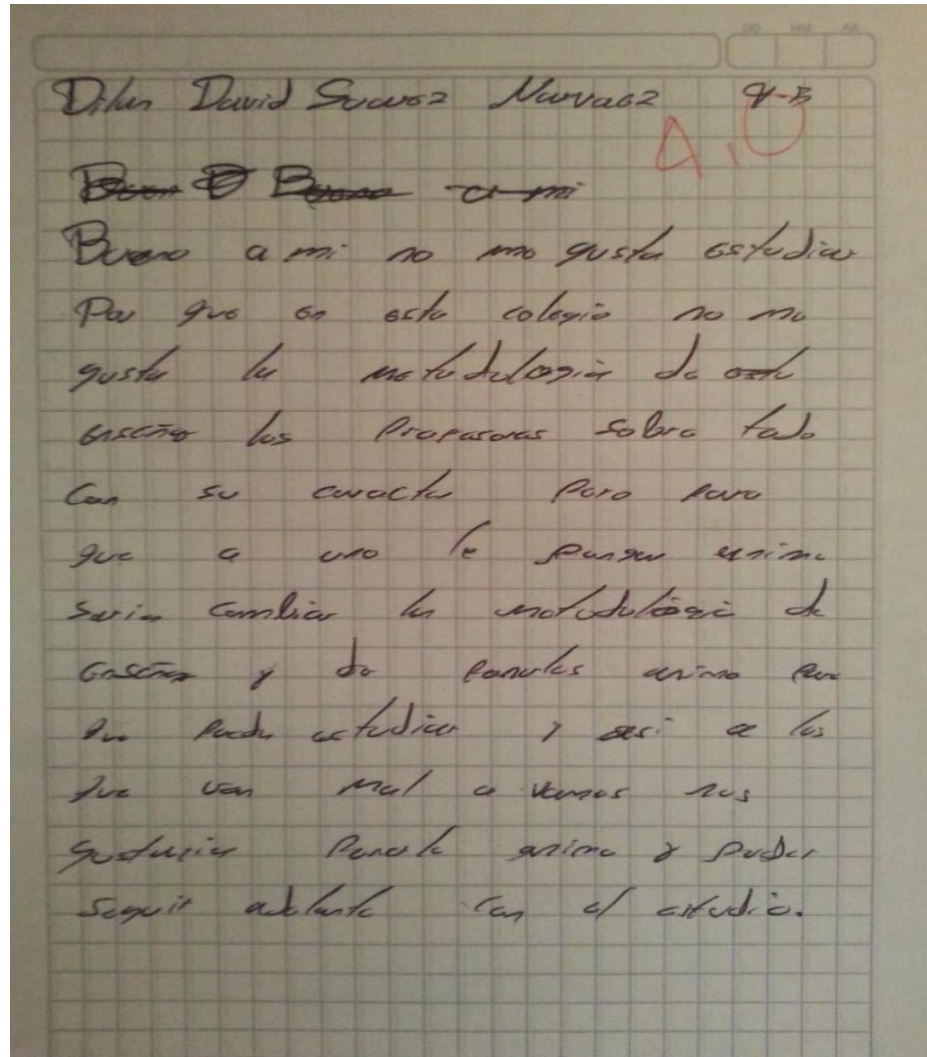 Dilan David Suarez Narvaez 9-B
4,0
Bueno a mi
Bueno a mi no me gusta estudiar
Por que en este colegio no me
gusta la metodologia de
enseñar los Profesores sobre todo
Con su caracter Pero para
que a uno le pongan animo
seria cambiar la metodologia de
enseñar y de ponerles animo para
que pueda estudiar y asi a los
que van mal o vamos nos
gustaria Ponerle animo y poder
seguir adelante con el estudio.